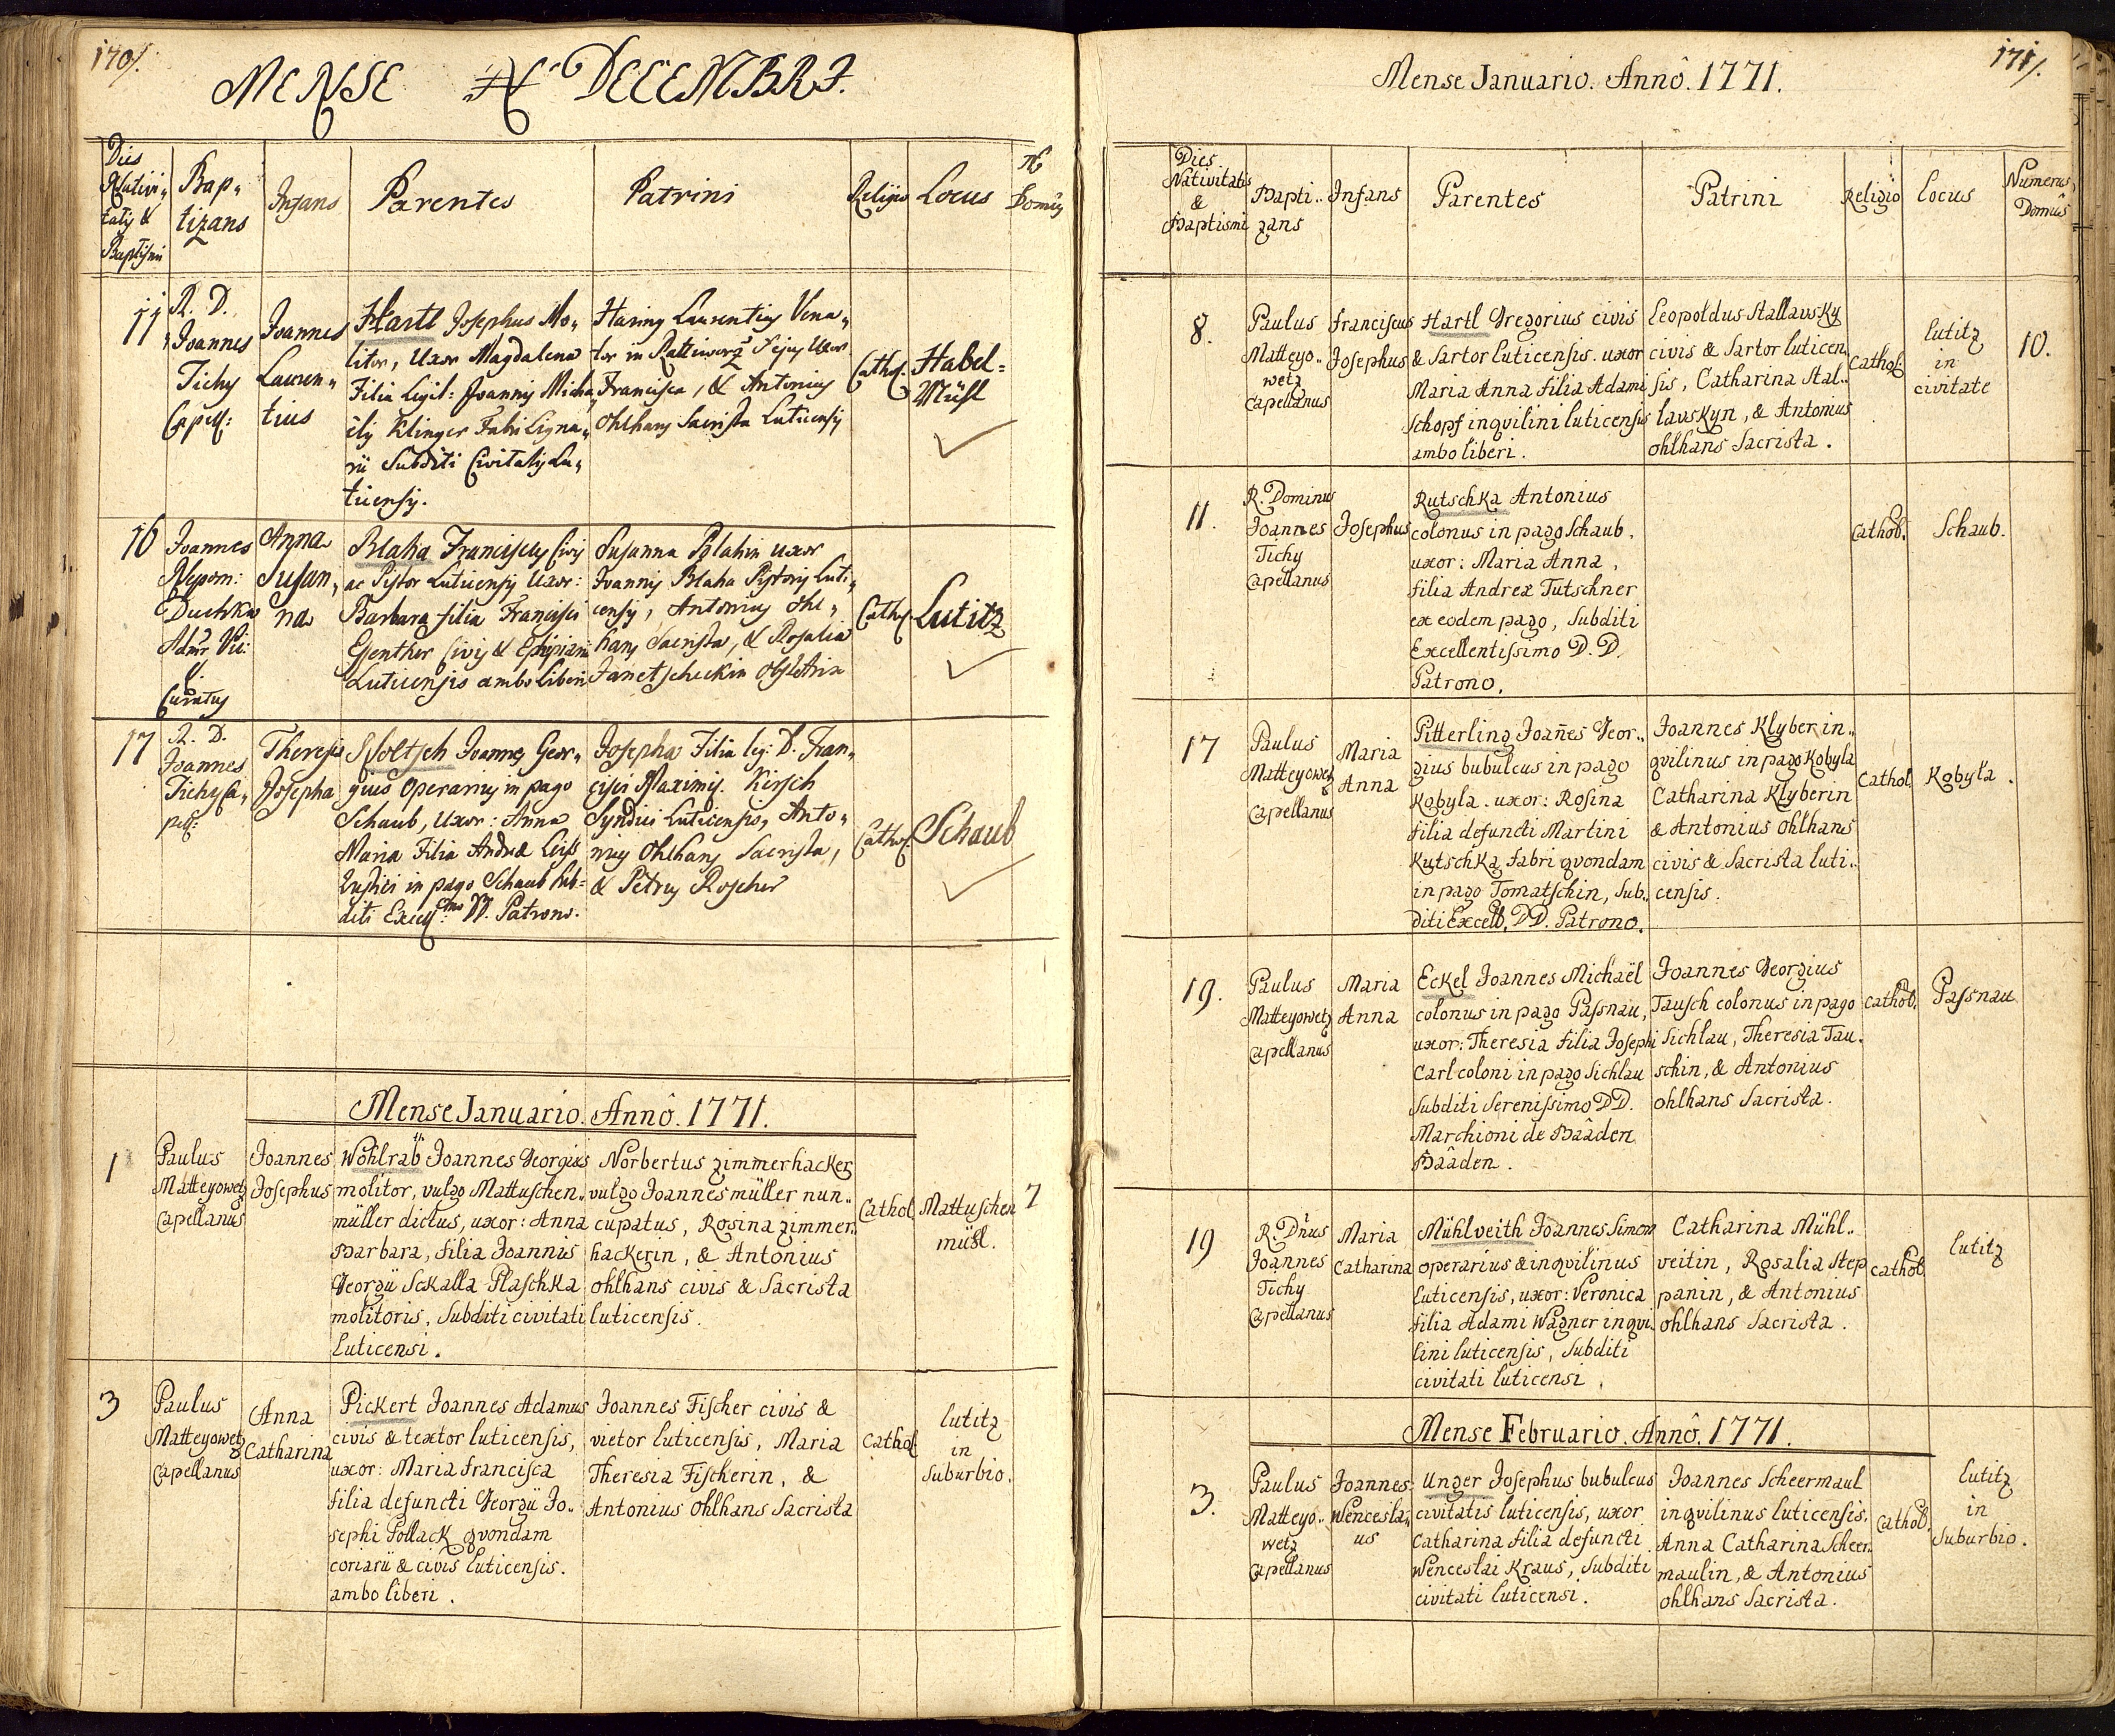 170/.
MENSE X DECEMBRI.
Dies Nativitatis & Baptismi
Baptizans
Infans
Parentes
Patrini
Religio
Locus
No Domûs
11
R. D.
Joannes
Tichy
Capell:
Joannes
Lauren„
tius
Hartl Josephus Mo„
litor, Uxor Magdalena
Filia Legit: Joannis Micha„
elis Klinger Fabri Ligna„
rii Subditi Civitatis Lu„
ticensis.
Haring Laurentius Vena„
tor in Rattiworz, Ejus Uxor
Francisca, & Antonius
Ohlhans Sacrista Luticensis
Cathol.
Habel=
Mühl
16
Joannes
Nepom:
Duchka
Curatus
Anna
Susan„
na
Blaha Franciscus Civis
ac Pistor Luticensis Uxor:
Barbara filia Francisci
Genther Civis &
Luticensis ambo Liberi
Susanna Blahin uxor
Joannis Blaha Pistoris Luti„
censis, Antonius Ohl„
hans Sacrista, & Rosalia
Janetscheckin Obstetrix
Cathol.
Lutitz
17
R. D.
Joannes
Tichy Ca„
pell:
Theresia
Josepha
Scholtsch Joannes Geor„
gius Operarius in pago
Schaub, Uxor: Anna
Maria Filia Andreæ Leiss
in pago Schaub Sub=
diti Excell:mo DD. Patrono.
Josepha Filia leg: D. Fran„
cisci Maximi. Kirsch
Syndici Luticensis, Anto„
nius Ohlhans Sacrista,
& Petrus Roscher
Cathol.
Schaub
Mense Januario. Annô. 1771.
1
Paulus
Matteyowetz
Capellanus
Joannes
Josephus
Wöhlrab Joannes Georgius
molitor, vulgo Mattuschen„
müller dictus, uxor: Anna
Barbara, filia Joannis
Georgii Sckalla Plaschka
molitoris, Subditi civitati
Luticensi.
Norbertus Zimmerhackel
vulgo Joannesmüller nun„
cupatus, Rosina Zimmer„
hackerin, & Antonius
Ohlhans civis & Sacrista
luticensis.
Cathol.
Mattuschen
mühl.
7
3
Paulus
Matteyowetz
Capellanus
Anna
Catharina
Pickert Joannes Adamus
civis & textor luticensis,
uxor: Maria Francisca
filia defuncti Georgii Jo„
sephi Pollack qvondam
coriarii & civis Luticensis.
ambo liberi.
Joannes Fischer civis &
vietor luticensis, Maria
Theresia Fischerin, &
Antonius Ohlhans Sacrista
Cathol.
lutitz
in
Suburbio.
171/.
Mense Januario. Annô. 1771.
Dies Nativitatis & Baptismi
Bapti„ zans
Infans
Parentes
Patrini
Religio
Locus
Numerus Domûs
8.
Paulus
Matteyo„
wetz
Capellanus
Franciscus
Josephus
Hartl Gregorius civis
& Sartor luticensis. uxor
Maria Anna filia Adami
Schopf inqvilini luticensis
ambo liberi.
Leopoldus Stallavsky
civis & Sartor luticen„
sis, Catharina Stal„
lavskyn, & Antonius
Ohlhans Sacrista.
Cathol.
lutitz
in
civitate
10.
11.
R. Dominus
Joannes
Tichy
Capellanus
Josephus
Rutschka Antonius
colonus in pago Schaub.
uxor: Maria Anna,
filia Andreæ Tutschner
ex eodem pago, Subditi
Excellentissimo D. D.
Patrono.
Cathol.
Schaub.
17
Paulus
Matteyowetz
Capellanus
Maria
Anna
Pitterling Joañes Geor„
gius bubulcus in pago
Kobyla. uxor: Rosina
filia defuncti Martini
Kutschka, fabri qvondam
in pago Tomatschin, Sub„
diti Excell. DD. Patrono.
Joannes Klyber in„
qvilinus in pago Kobyla
Catharina Klyberin
& Antonius Ohlhans
civis & Sacrista luti„
censis.
Cathol.
Kobyla.
19.
Paulus
Matteyowetz
Capellanus
Maria
Anna
Eckel Joannes Michaël
colonus in pago Passnau,
uxor: Theresia filia Josephi
Carl coloni in pago Sichlau
Subditi Serenissimo DD.
Marchioni de Baâden
Baâden.
Joannes Georgius
Tausch colonus in pago
Sichlau, Theresia Tau„
schin, & Antonius
Ohlhans Sacrista.
Cathol.
Passnau
19
R. Dnus
Joannes
Tichy
Capellanus
Maria
Catharina
Mühlveith Joannes Simon
operarius & inqvilinus
luticensis, uxor: Veronica
filia Adami Wagner inqvi„
lini luticensis, Subditi
civitati luticensi.
Catharina Mühl„
veitin, Rosalia Step
panin, & Antonius
Ohlhans Sacrista.
Cathol.
lutitz
Mense Februario. Annô. 1771.
3.
Paulus
Matteyo„
wetz
Capellanus
Joannes
Wencesla„
us
Unger Josephus bubulcus
civitatis luticensis, uxor
Catharina filia defuncti
Wenceslai Kraus, Subditi
civitati luticensi.
Joannes Scheermaul
inqvilinus luticensis.
Anna Catharina Scheer„
maulin, & Antonius
Ohlhans Sacrista.
Cathol.
lutitz
in
Suburbio.